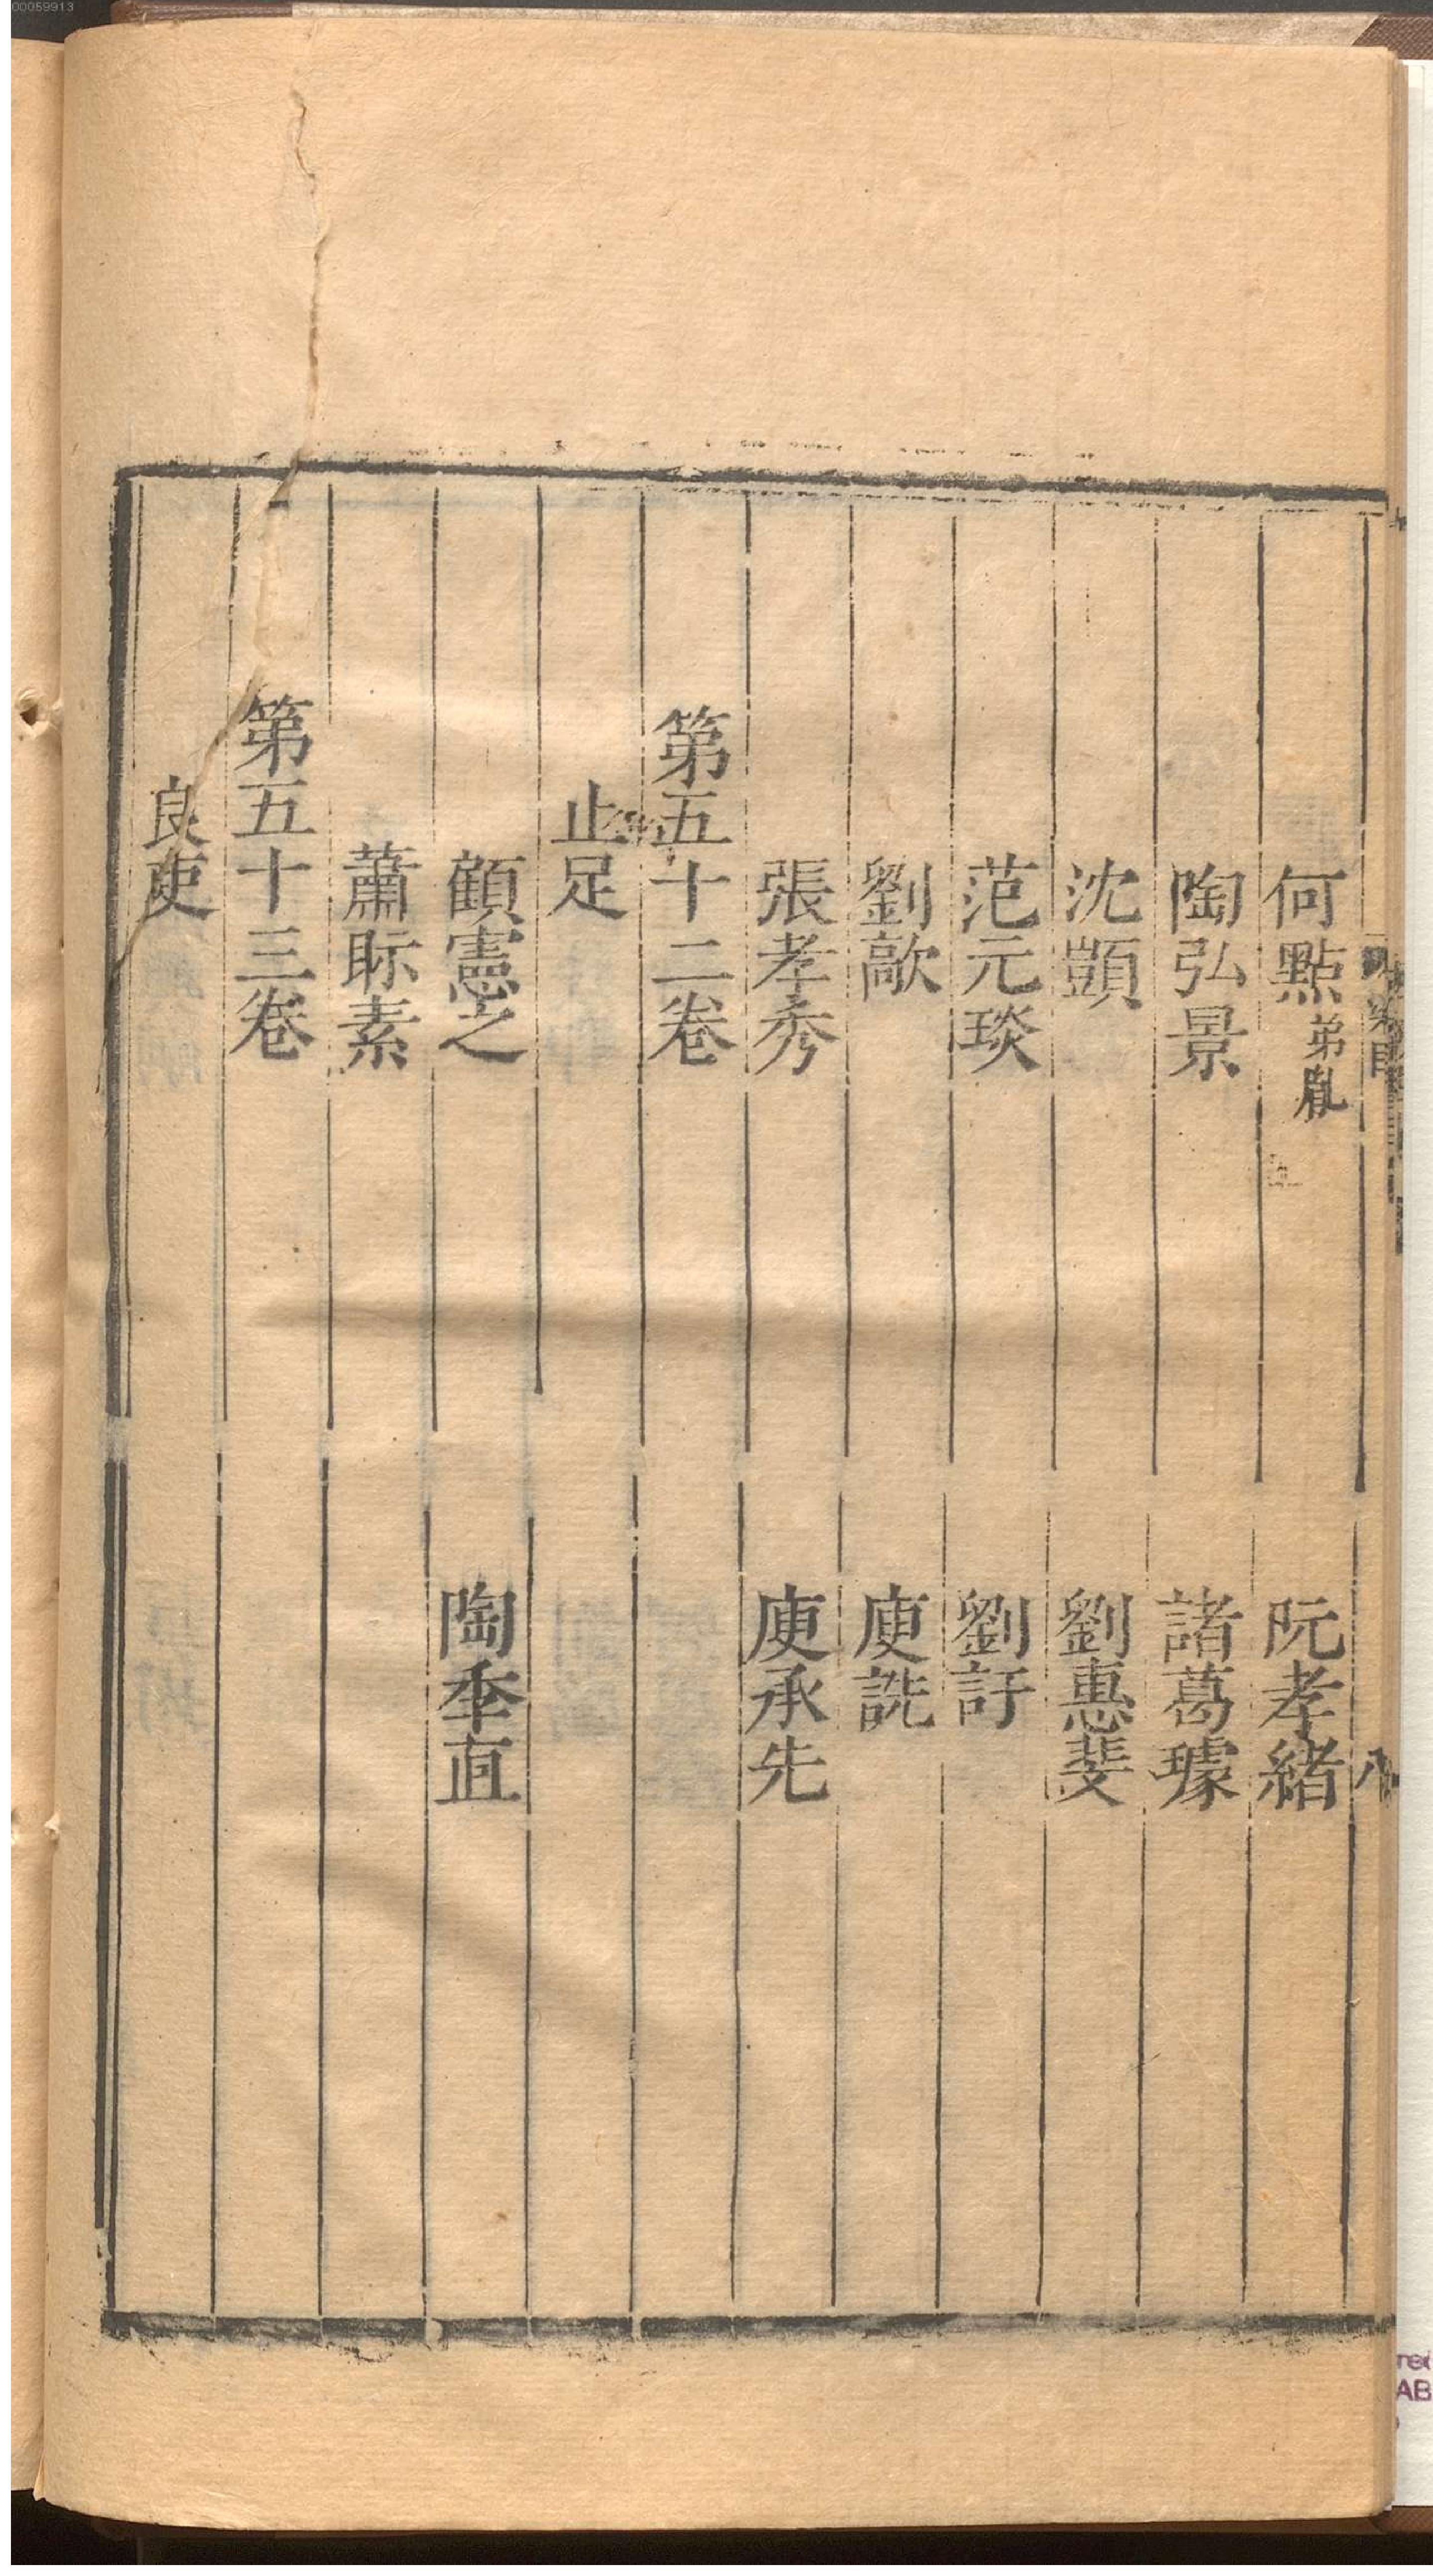 何點弟胤 阮孝緒
陶弘景 諸葛璩
沈顗 劉惠斐
范元琰 劉訏
劉歊 庾詵
張孝秀 庾承先
第五十二卷
止足
顧憲之 陶季直
蕭眎素
第五十三卷
良吏
八
00059913